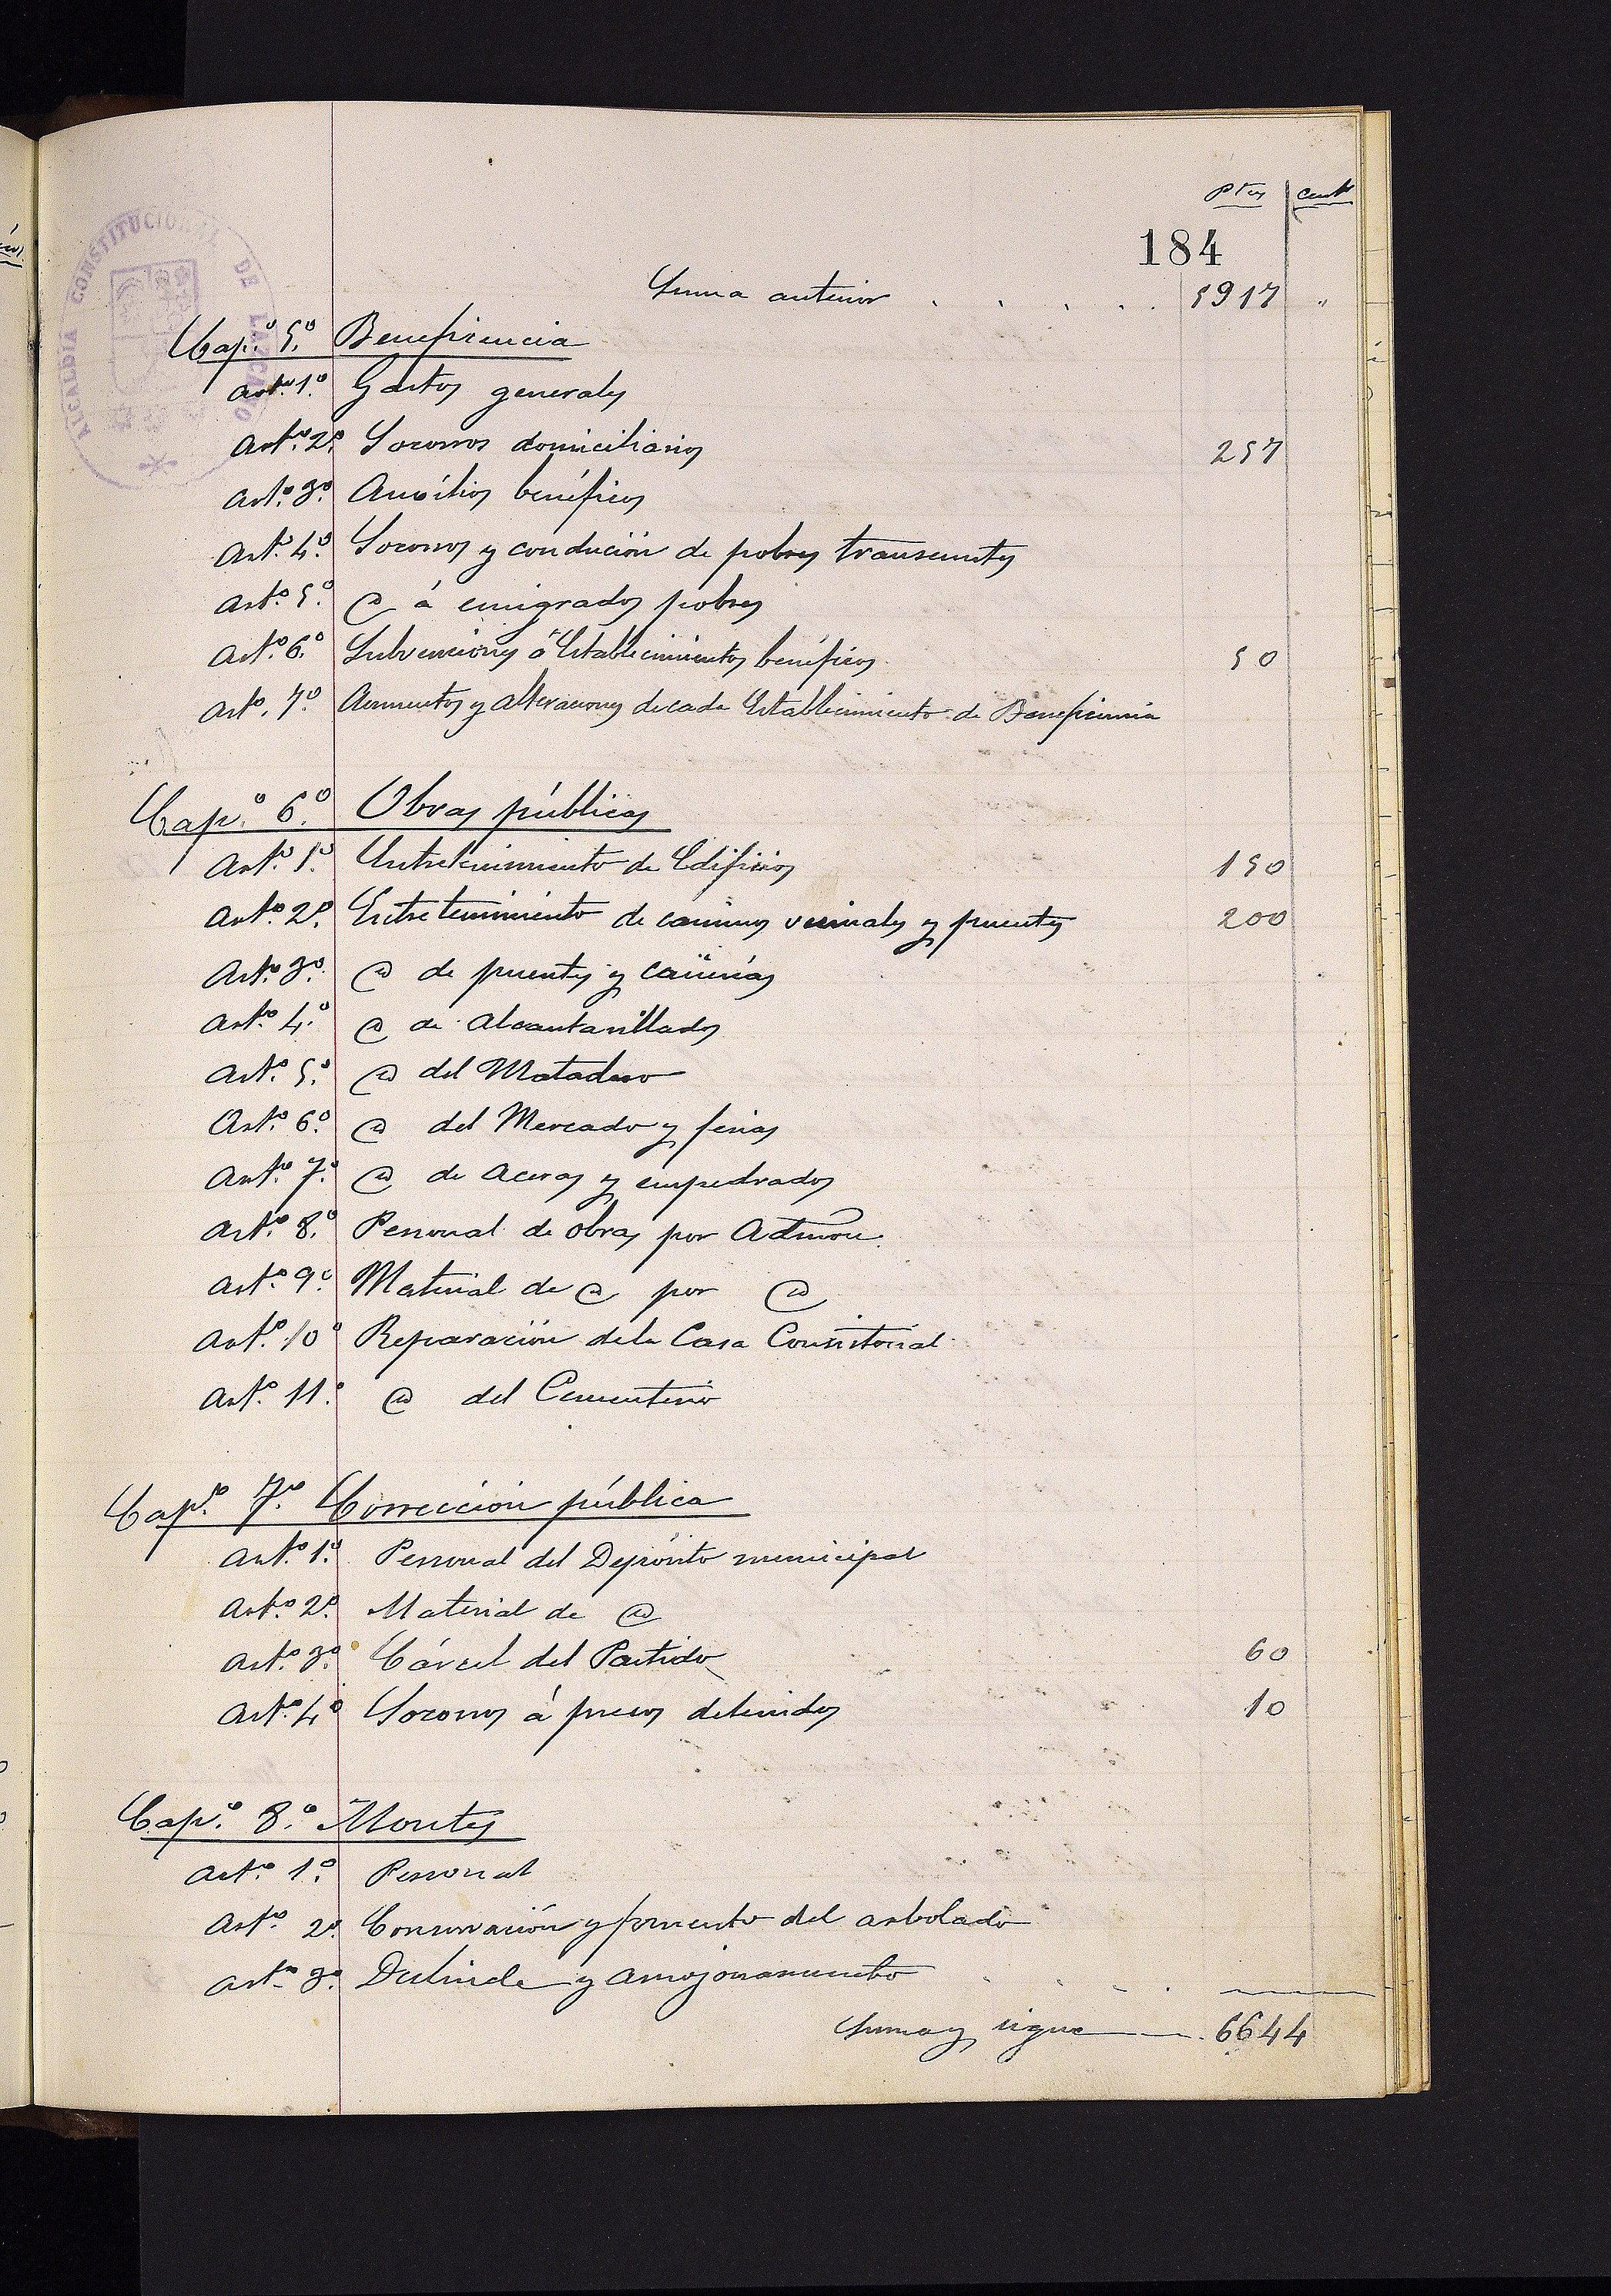 Ptas cents
184
Suma anterior . . . . . 5917 "
Cap.º 5.º Beneficencia
Art.º 1.º Gastos generales
Art.º 2.º Socorros domiciliarios 257
Art.º 3.º Auxilios benéficos
Art.º 4.º Socorros y condución de pobres transeuntes
Art.º 5.º @ á emigrados pobres
Art.º 6.º Subvenciones á Establecimientos benéficos 50
Art.º 7.º Aumentos y alteraciones de cada Establecimiento de Beneficencia
Cap.º 6.º Obras públicas
Art.º 1.º Entretenimiento de Edificios 150
Art.º 2.º Entretenimiento de caminos vecinales y puentes 200
Art.º 3.º @ de fuentes y cañerías
Art.º 4.º @ de Alcantarillados
Art.º 5.º @ del Matadero
Art.º 6.º @ del Mercado y ferias
Art.º 7.º @ de Aceras y empedrados
Art.º 8.º Personal de obras por Admon.
Art.º 9.º Material de @ por @
Art.º 10º Reparación de la Casa Consistorial
Art.º 11.º @ del Cementerio
Cap.º 7.º Corrección pública
Art.º 1.º Personal del Depósito municipal
Art.º 2.º Material de @
Art.º 3.º Cárcel del Partido 60
Art.º 4.º Socorros á presos detenidos 10
Cap.º 8.º Montes
Art.º 1.º Personal
Art.º 2.º Conservación y fomento del arbolado
Art.º 3.º Deslinde y amojonamiento . . . .
Suma y sigue 6644
ALCALDIA CONSTITUCIONAL DE LAZCANO